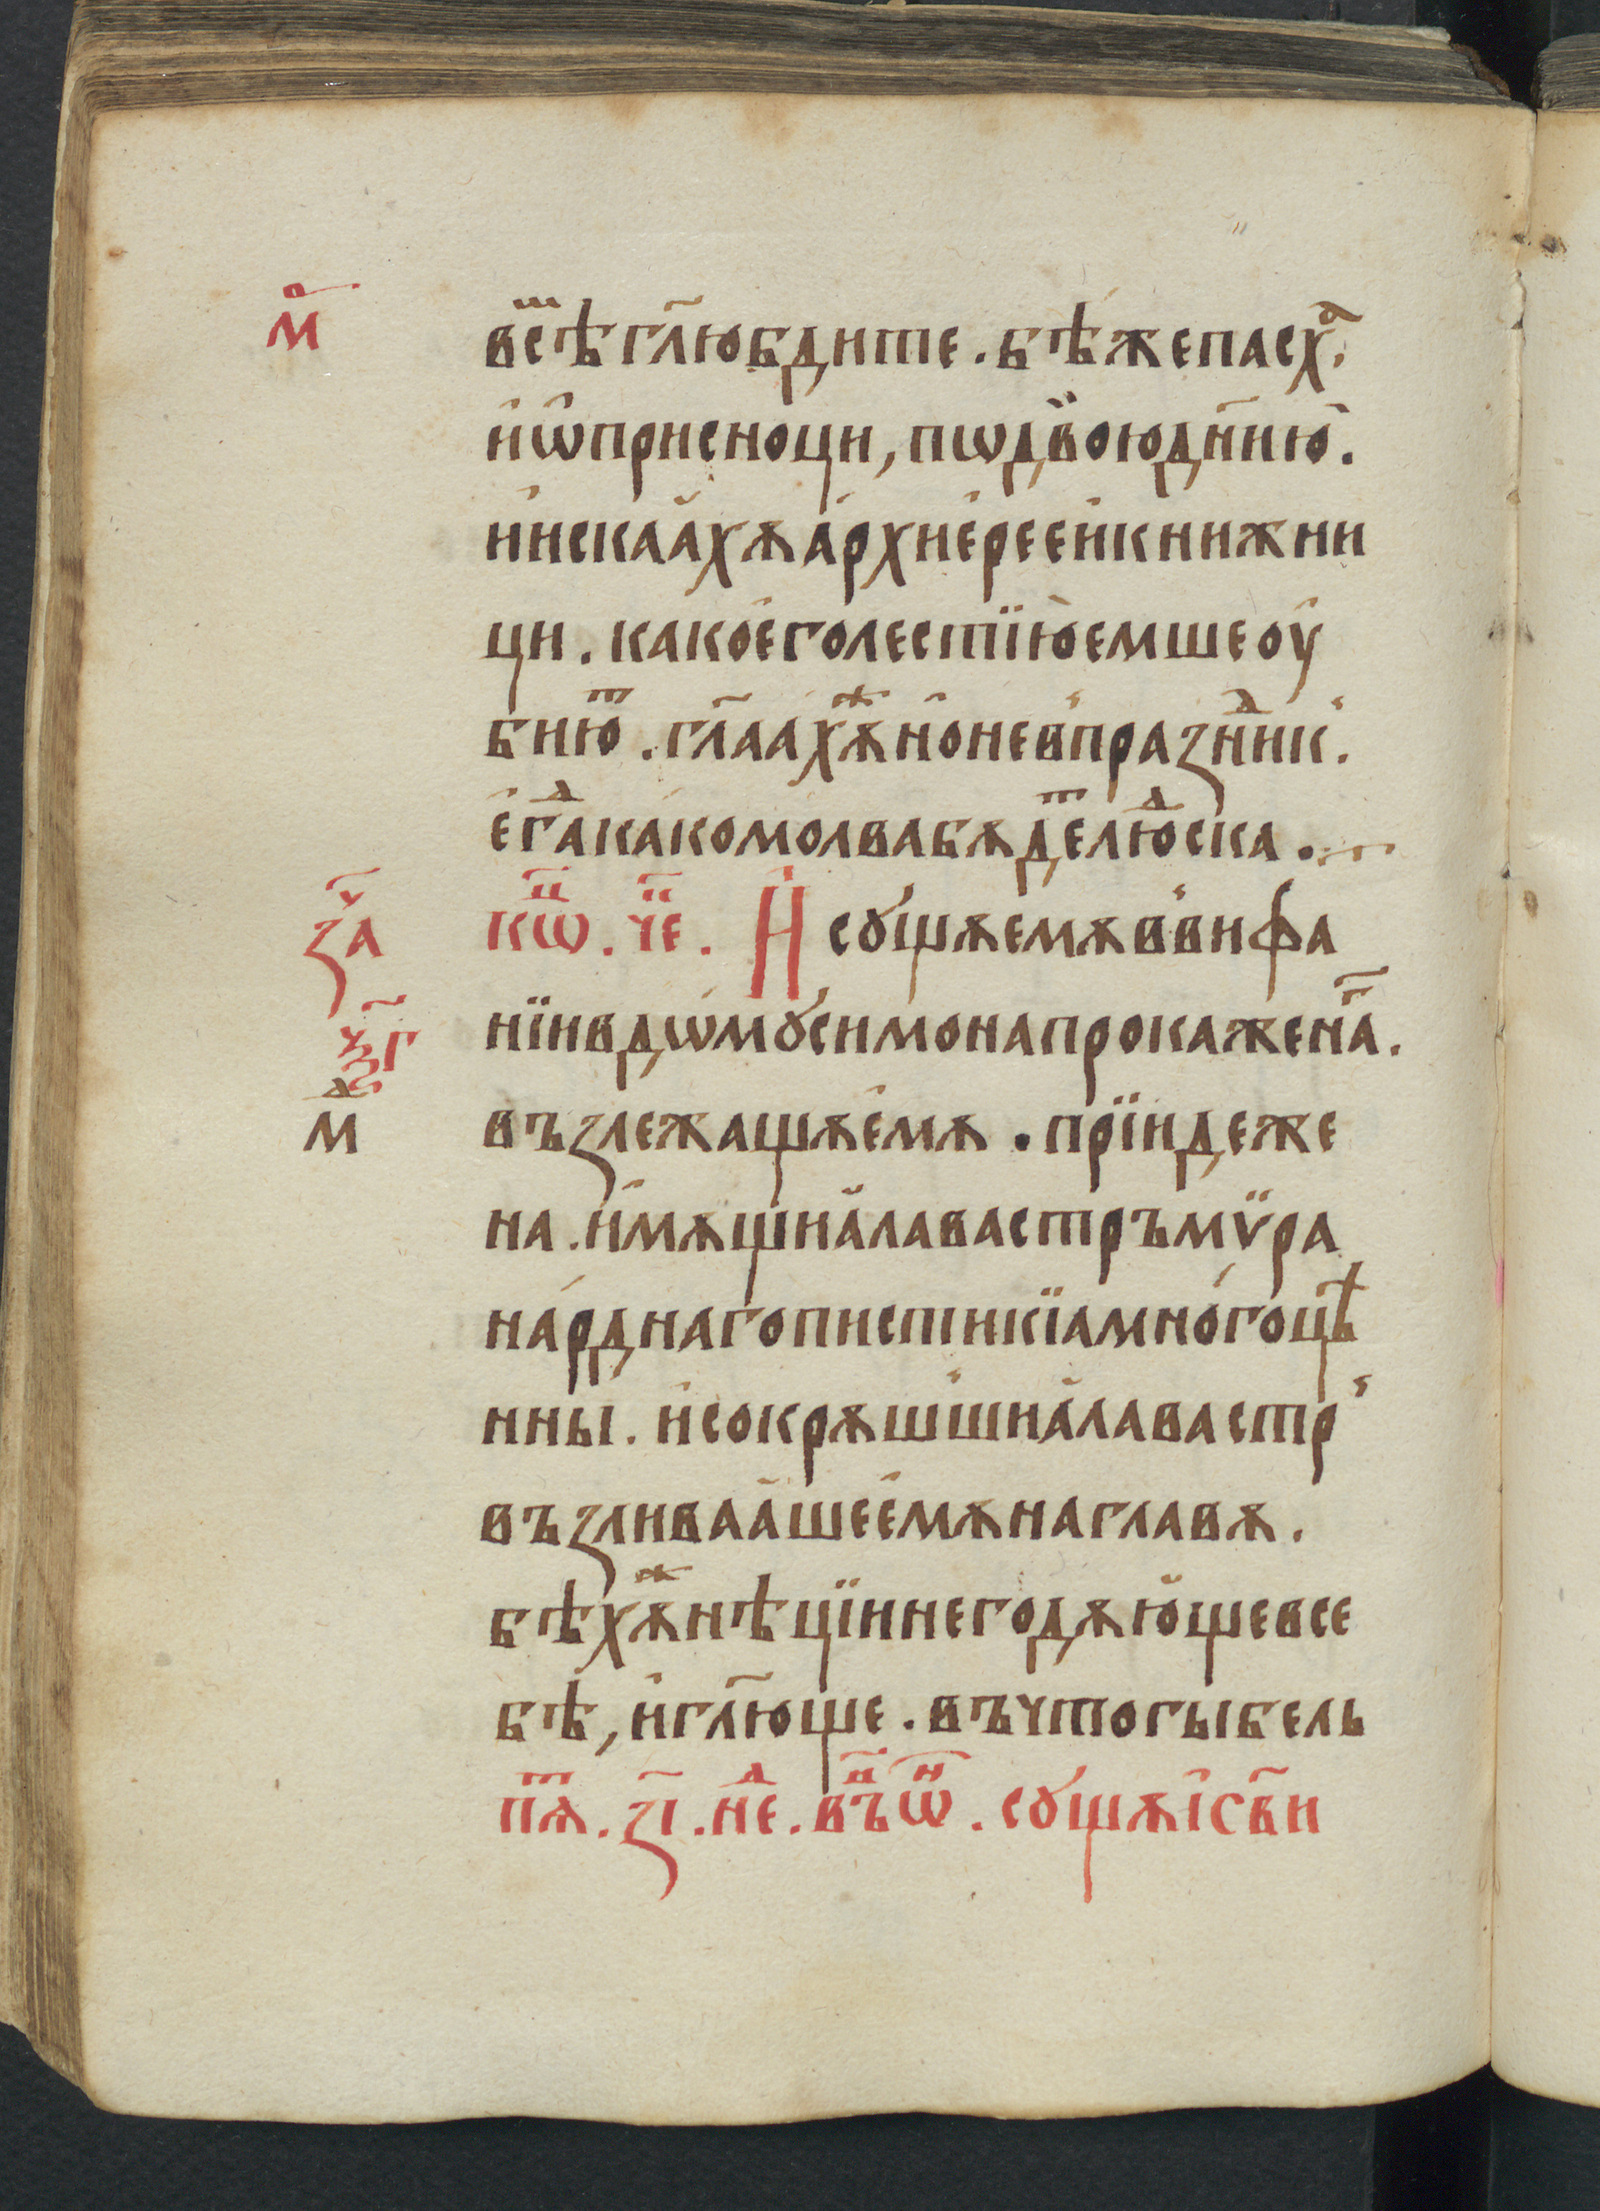 м҃
всⷮѣ гл҃ю бдите . бѣ же пасхⷶ,
и҆ ѡ҆приснони, пѡ двою дн҃ию .
и҆ искаа҆хѫ а҆рхие҆рее и҆ книжни
ци . како е҆го лестїю е҆мше оу҆
бинⷮю . гл҃аахѫⷤ но не в праꙁнⷣик .
е҆гⷣа како молва бѫдеⷮ люⷣска .
ꙁⷱ҃а
кѡⷩ҇ . чⷮе . И҆ сꙋщѫ емѫ в виѳа
ѯ҃г
нїи в дѡмꙋ симона прокаженⷢ҇а .
мⷣ
въꙁлежащѫ е҆мѫ . прїиде же
на . и҆мѫщи а҆лавастръ мѵ̈ра
на́рднаго пистикїа многоцѣ
нны . и҆ сокрѫшши а҆лавастр
въꙁливааше е҆мѫ на главѫ .
бѣхѫⷤ нѣцїи негодѫю҆ще в се
бѣ, и҆ гл҃юще . въ что гыбель
пⷮѫ . ꙁ҃і . нⷣе . въⷩ҇ ѡⷩ . сꙋщѫ і҆с҃ в ви